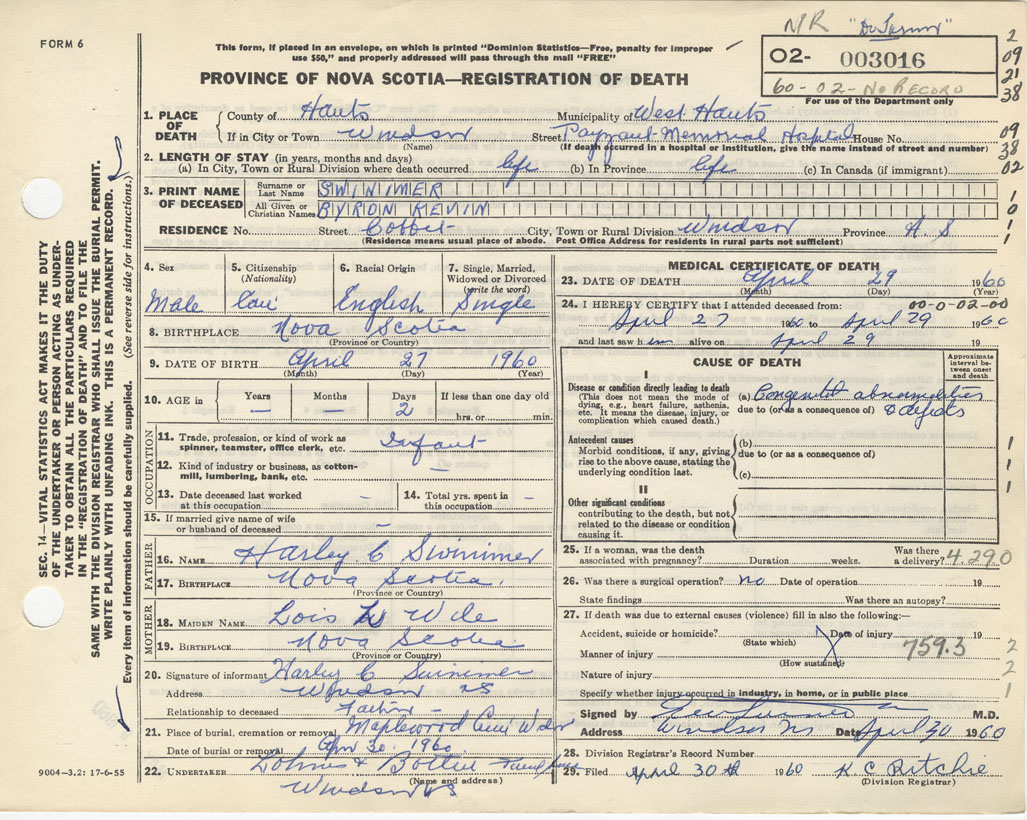 FORM 6
N/R
This form, if placed in an envelope, on which is printed "Dominion Statistics—Free, penalty for improper
use $50," and properly addressed will pass through the mail "FREE"
PROVINCE OF NOVA SCOTIA—REGISTRATION OF DEATH
02- 003016
60-02-NO RECORD
For use of the Department only
2
09
21
38
09
38
02
1. PLACE OF DEATH
County of Hants Municipality of West Hants
If in City or Town Windsor Street Payzant Memorial Hospital House No.
(Name) (If death occurred in a hospital or institution, give the name instead of street and number)
2. LENGTH OF STAY (in years, months and days)
(a) In City, Town or Rural Division where death occurred life (b) In Province life (c) In Canada (if immigrant)
3. PRINT NAME OF DECEASED
Surname or Last Name SWINIMER
All Given or Christian Names BYRON KEVIN
1
0
1
1
RESIDENCE No. Street Cobbet City, Town or Rural Division Windsor Province N.S
(Residence means usual place of abode. Post Office Address for residents in rural parts not sufficient)
4. Sex
Male
5. Citizenship (Nationality)
Can
6. Racial Origin
English
7. Single, Married, Widowed or Divorced (write the word)
Single
8. BIRTHPLACE Nova Scotia
(Province or Country)
9. DATE OF BIRTH April 27 1960
(Month) (Day) (Year)
10. AGE in Years Months Days If less than one day old
— — 2 hrs. or min.
OCCUPATION
11. Trade, profession, or kind of work as spinner, teamster, office clerk, etc. Infant
12. Kind of industry or business, as cotton-mill, lumbering, bank, etc. —
13. Date deceased last worked at this occupation —
14. Total yrs. spent in this occupation —
15. If married give name of wife or husband of deceased —
FATHER
16. NAME Harley C Swinimer
17. BIRTHPLACE Nova Scotia.
(Province or Country)
MOTHER
18. MAIDEN NAME Lois Wile
19. BIRTHPLACE Nova Scotia
(Province or Country)
20. Signature of informant Harley C Swinimer
Address Windsor NS
Relationship to deceased Father
21. Place of burial, cremation or removal Maplewood Cem Windsor
Date of burial or removal Apr 30, 1960
22. UNDERTAKER
(Name and address)
Windsor NS
9004—3.2: 17-6-55
MEDICAL CERTIFICATE OF DEATH
23. DATE OF DEATH April 29 1960
(Month) (Day) (Year)
24. I HEREBY CERTIFY that I attended deceased from: 00-0-02-00
April 27 1960 to April 29 1960
and last saw h im alive on April 29 19
CAUSE OF DEATH
Approximate interval between onset and death
I
Disease or condition directly leading to death
(This does not mean the mode of dying, e.g., heart failure, asthenia, etc. It means the disease, injury, or complication which caused death.)
(a) Congenital abnormalities
due to (or as a consequence of) & defects
Antecedent causes
Morbid conditions, if any, giving rise to the above cause, stating the underlying condition last.
(b)
due to (or as a consequence of)
(c)
1
1
1
II
Other significant conditions
contributing to the death, but not related to the disease or condition causing it.
25. If a woman, was the death associated with pregnancy? Duration weeks. Was there a delivery? 4.290
26. Was there a surgical operation? no Date of operation 19
State findings Was there an autopsy?
27. If death was due to external causes (violence) fill in also the following:—
Accident, suicide or homicide? Date of injury 19
(State which)
Manner of injury 759.3
(How sustained)
Nature of injury
2
2
1
Specify whether injury occurred in industry, in home, or in public place
Signed by M.D.
Address Windsor NS Date April 30 1960
28. Division Registrar's Record Number
29. Filed April 30th 1960 K C Ritchie
(Division Registrar)
SEC. 14—VITAL STATISTICS ACT MAKES IT THE DUTY
OF THE UNDERTAKER OR PERSON ACTING AS UNDER-
TAKER TO OBTAIN ALL THE PARTICULARS REQUIRED
IN THE "REGISTRATION OF DEATH" AND TO FILE THE
SAME WITH THE DIVISION REGISTRAR WHO SHALL ISSUE THE BURIAL PERMIT.
WRITE PLAINLY WITH UNFADING INK. THIS IS A PERMANENT RECORD.
Every item of information should be carefully supplied. (See reverse side for instructions.)